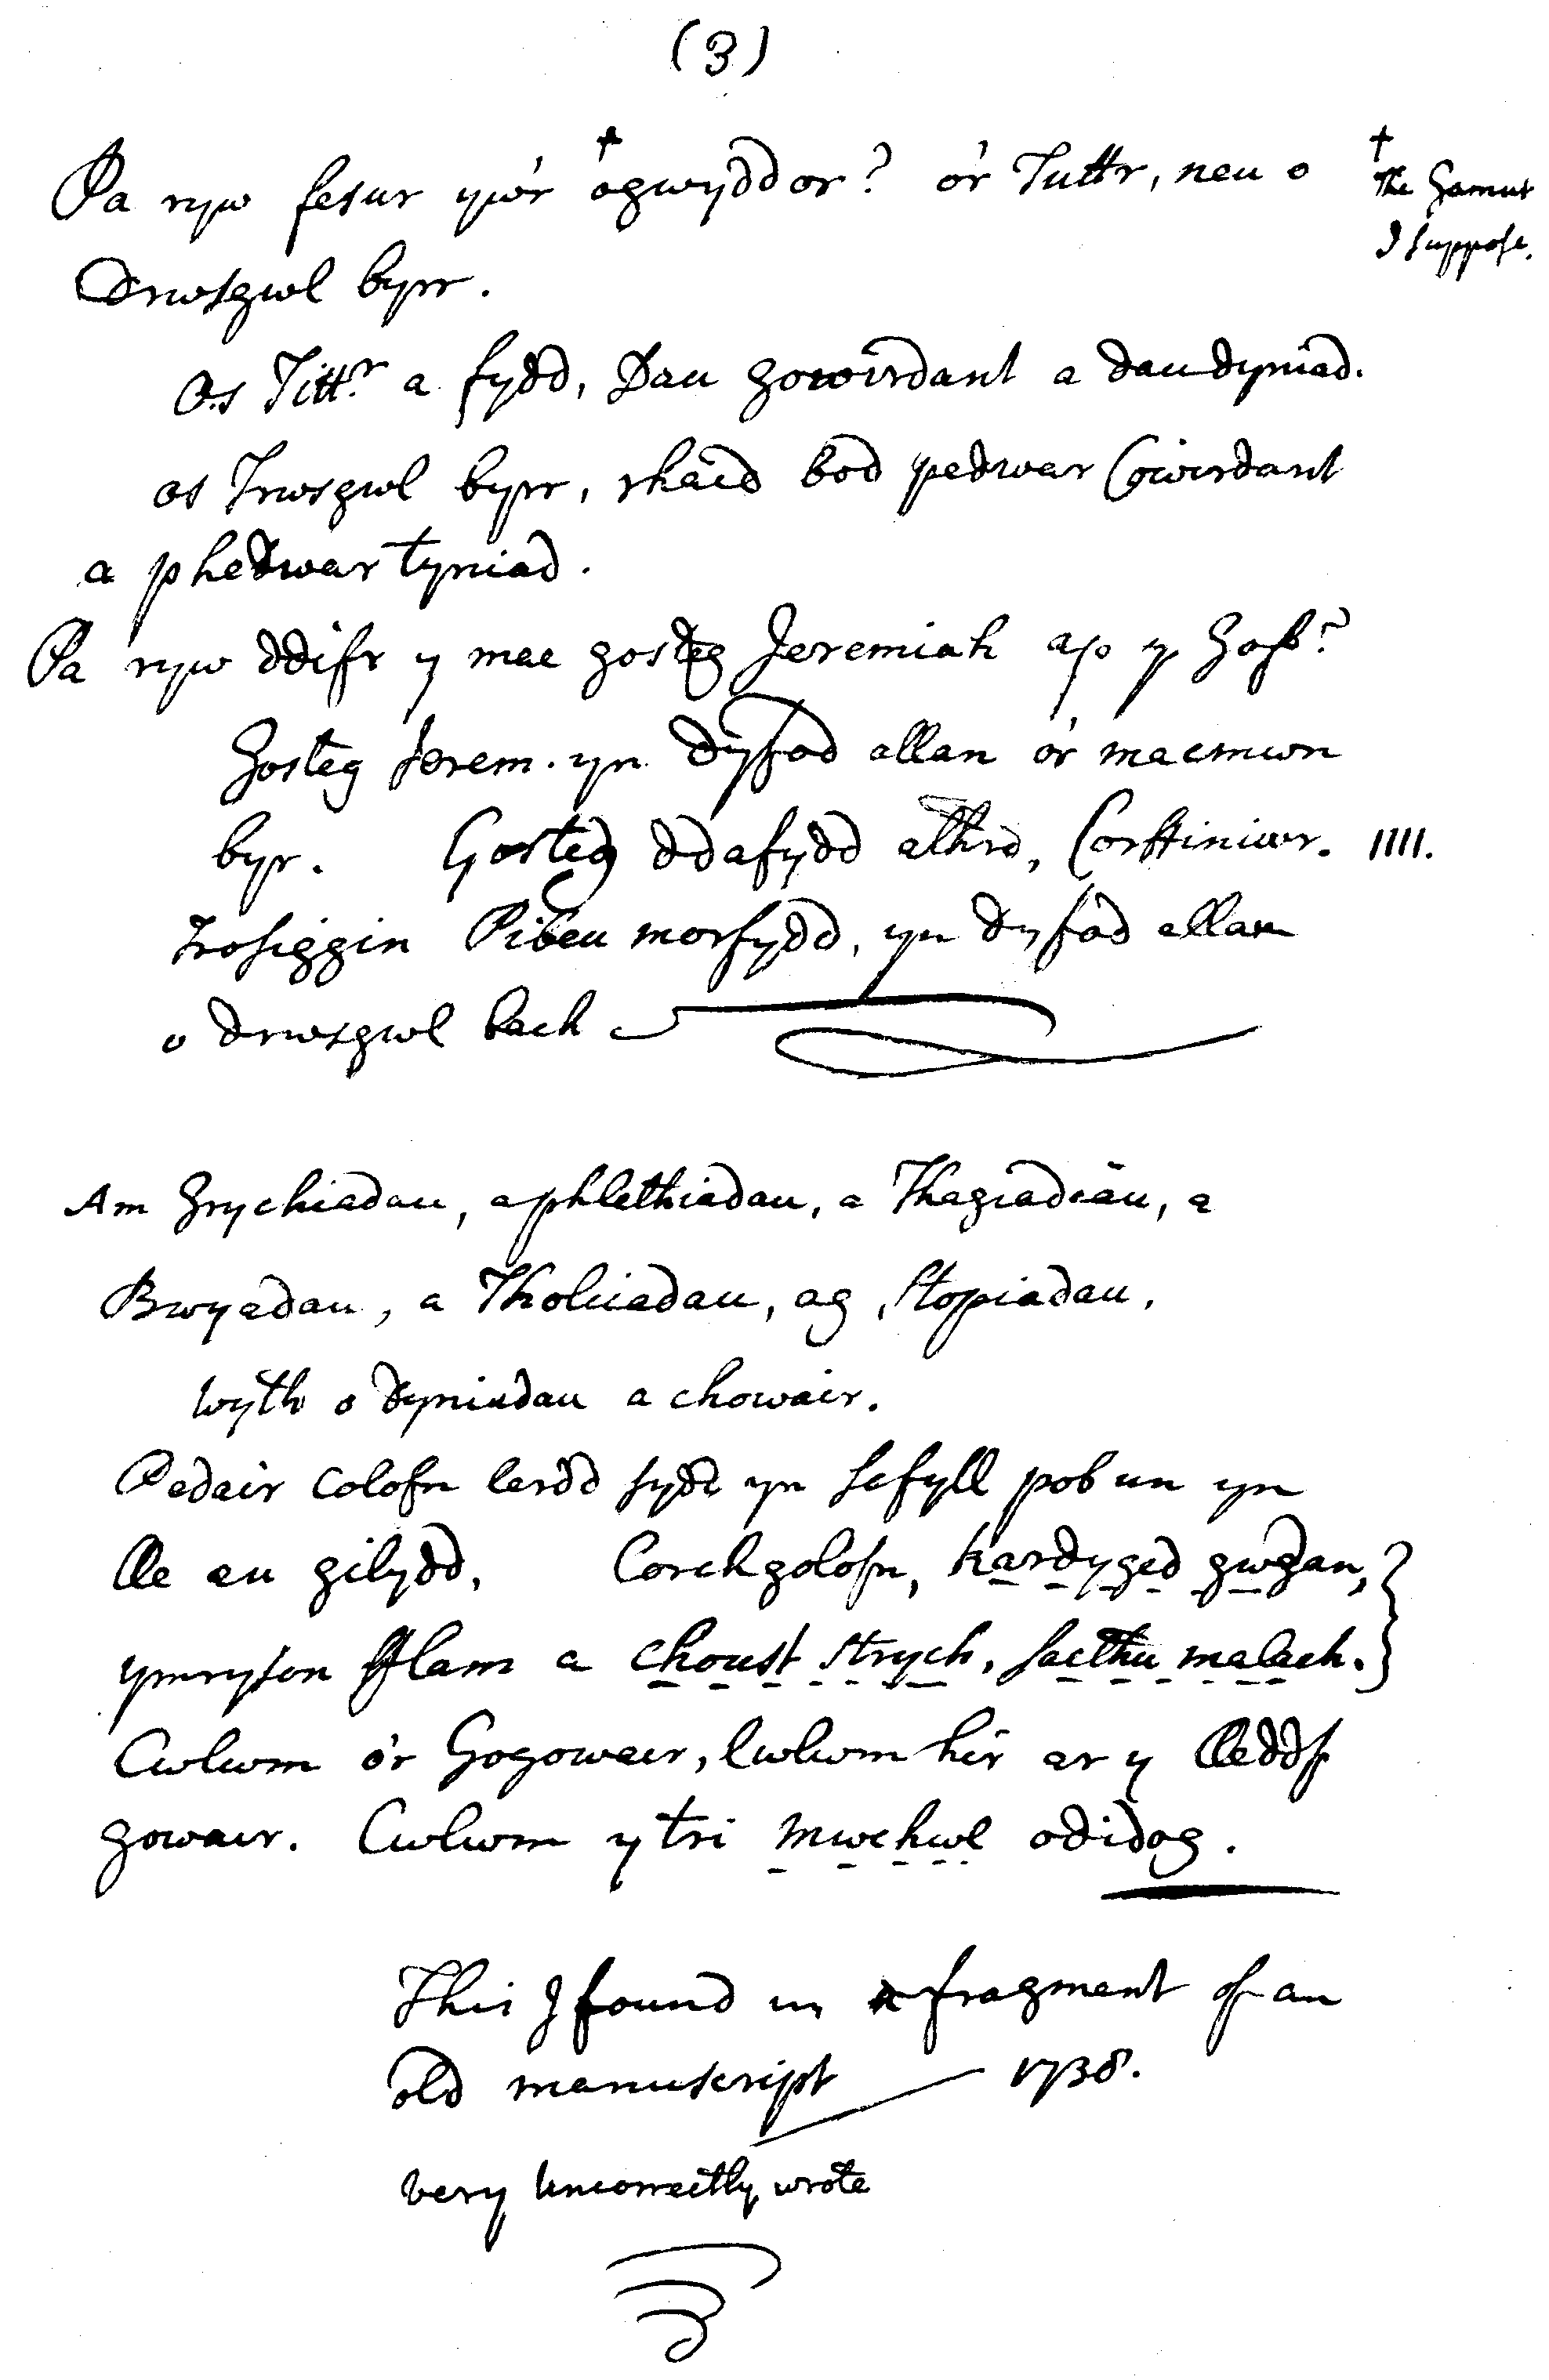 (3)
Pa ryw fesur yw'r † ogwyddor? o'r Tuttr, neu o
† The Gamut
I suppose.
Drwsgwl byrr.
Os Tittr. a fydd, Dau gowirdant a dau dyniad.
os Trwsgwl byrr, rhaid bod pedwar Cowirdant
a phedwar tyniad.
Pa ryw ddifr y mae gosteg Jeremiah ap y Goff?
Gosteg Jerem. yn dyfod allan o'r macmwn
byr. Gosteg ddafydd athro, Corffiniwr. 1111.
Trosiggin Pibeu morfydd, yn dyfod allan
o drwsgwl bach
Am Grychiadau, a phlethiadau, a Thagiadau, a
Bwyadau, a Tholiiadau, ag Stopiadau,
wyth o dyniadau a chowair.
Pedair Colofn lerdd sydd yn sefyll pob un yn
lle eu gilydd, Corchgolofn, kardyged gwgan,
ymryson fflam a choust strych, saethu malach.
Cwlwm o'r Gogowair, Cwlwm hir ar y lleddf
gowair. Cwlwm y tri mwchwl odidog.
This I found in a fragment of an
old manuscript 1738.
very uncorrectly wrote